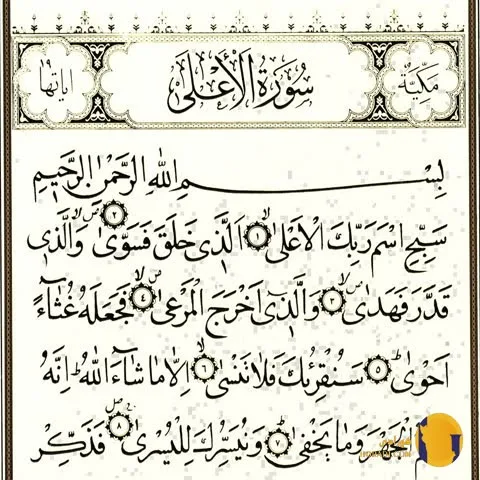 مَكِّيَّةٌ
سُورَةُ الْأَعْلَى
اٰيَاتُهَا ١٩
بِسْمِ اللّٰهِ الرَّحْمٰنِ الرَّحٖيمِ
سَبِّحِ اسْمَ رَبِّكَ الْاَعْلٰىۙ ١ اَلَّذٖى خَلَقَ فَسَوّٰىۙ ٢ وَالَّذٖى
قَدَّرَ فَهَدٰىۙ ٣ وَالَّذٖٓى اَخْرَجَ الْمَرْعٰىۙ ٤ فَجَعَلَهُ غُثَٓاءً
اَحْوٰىۜ ٥ سَنُقْرِئُكَ فَلَا تَنْسٰىۙ ٦ اِلَّا مَا شَٓاءَ اللّٰهُۜ اِنَّهُ
الْجَهْرَ وَمَا يَخْفٰىۜ ٧ وَنُيَسِّرُكَ لِلْيُسْرٰىۚ ٨ فَذَكِّرْ